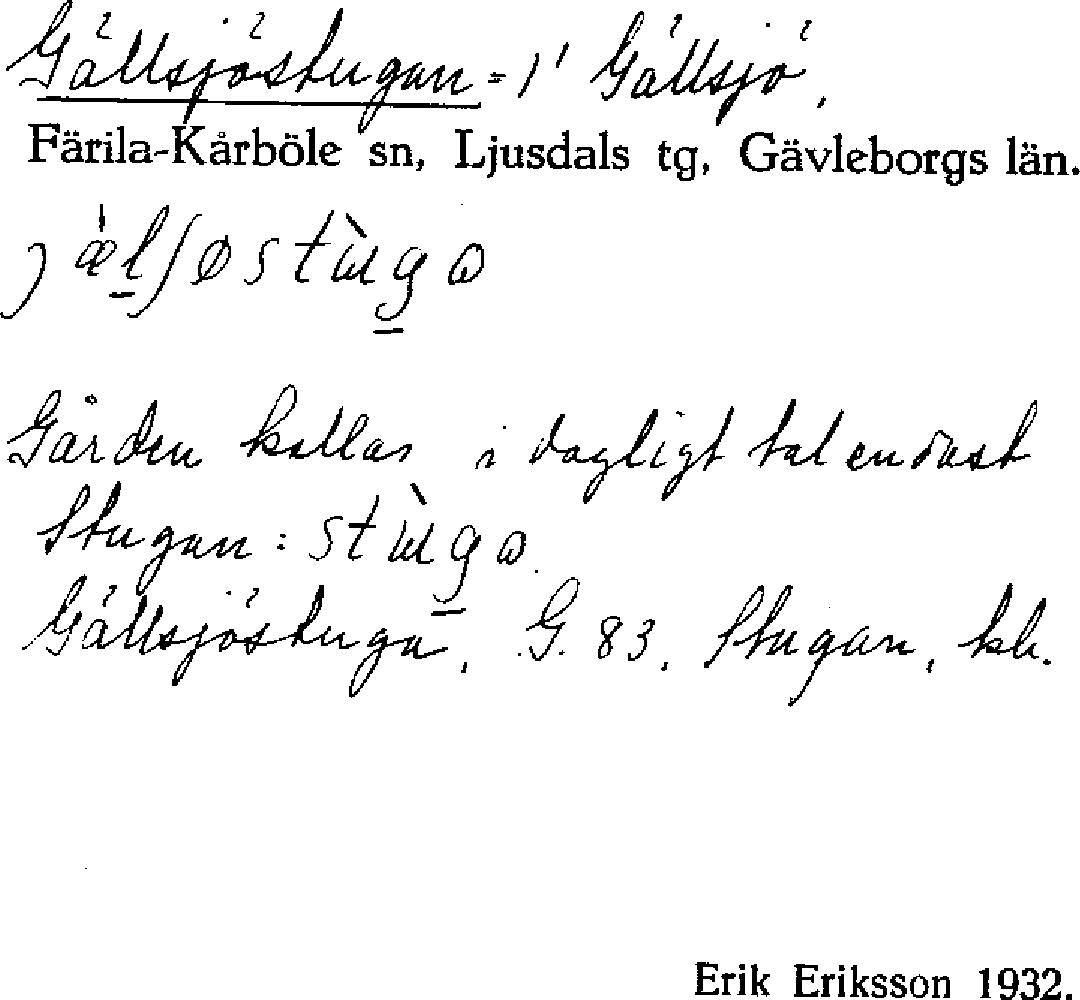 Gällsjöstugan = 1' Gällsjö,
Färila-Kårböle sn, Ljusdals tg, Gävleborgs län.
jælʃøstùgɷ
Gården kallas i dagligt tal endast
Stugan: stùgɷ.
Gällsjöstuga, G. 83, Stugan, kb.
Erik Eriksson 1932.